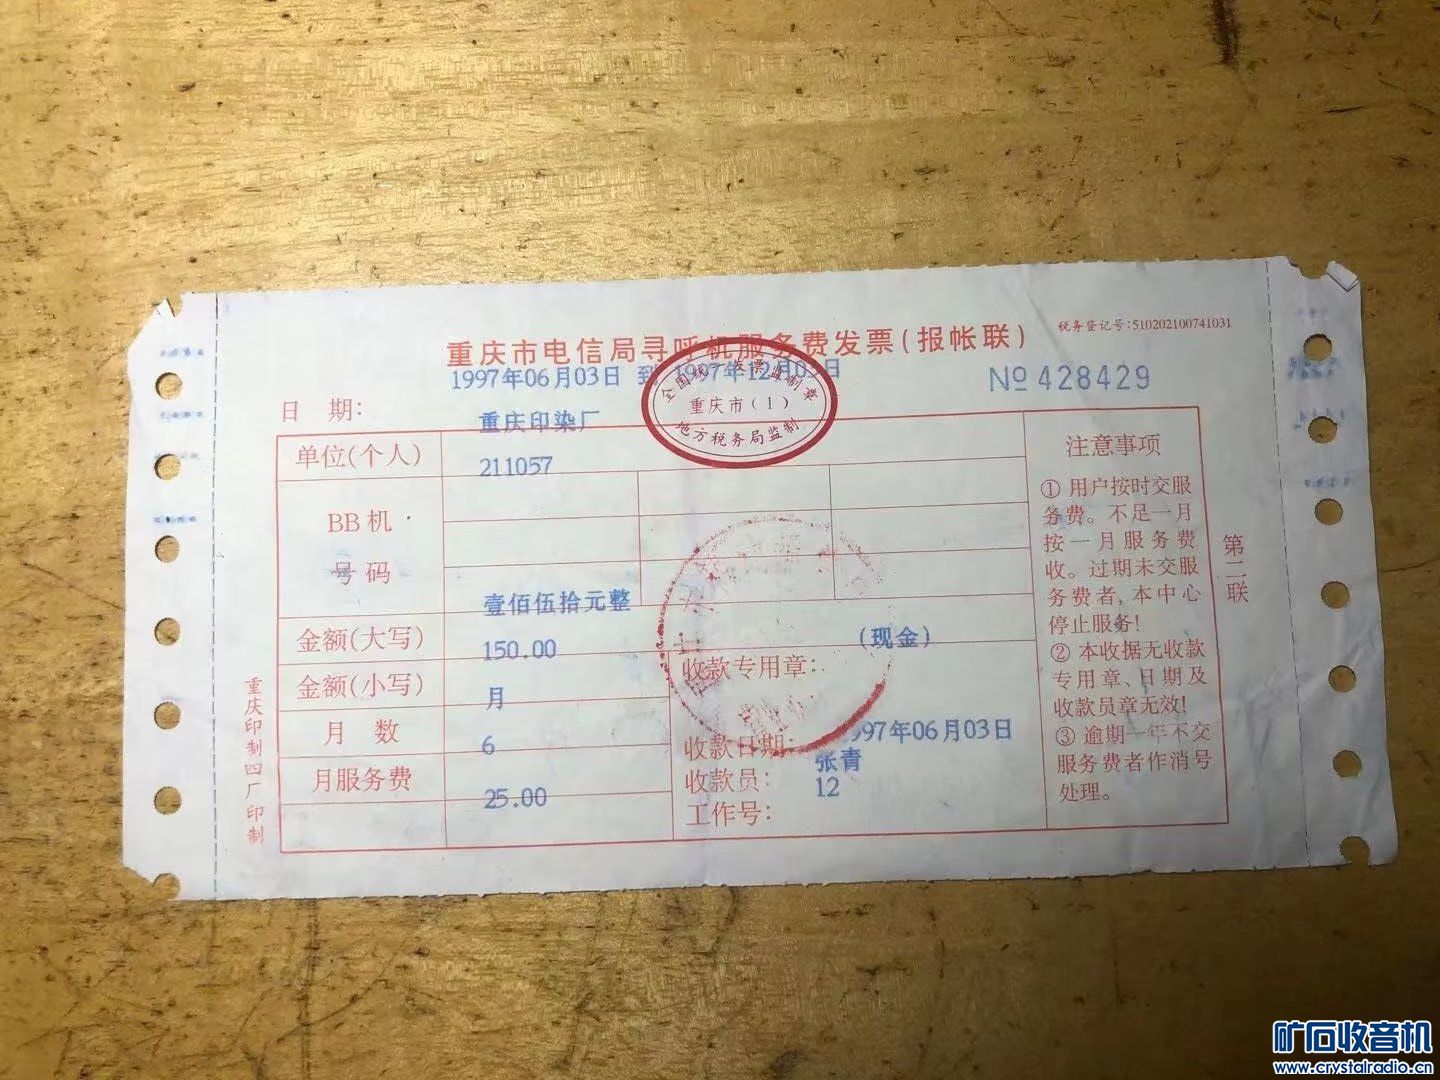 税务登记号:510202100741031
重庆市电信局寻呼机服务费发票(报帐联)
1997年06月03日 到 1997年12月03日
№428429
全国统一发票监制章
重庆市(1)
地方税务局监制
日 期:
重庆印染厂
单位(个人)
211057
BB机
号码
壹佰伍拾元整
金额(大写)
150.00
(现金)
金额(小写)
月
收款专用章:
月 数
6
收款日期:
97年06月03日
月服务费
25.00
收款员:
张青
工作号:
12
注意事项
① 用户按时交服
务费。不足一月
按一月服务费
收。过期未交服
务费者,本中心
停止服务!
② 本收据无收款
专用章、日期及
收款员章无效!
③ 逾期一年不交
服务费者作消号
处理。
第二联
重庆印制四厂印制
矿石收音机
www.crystalradio.cn